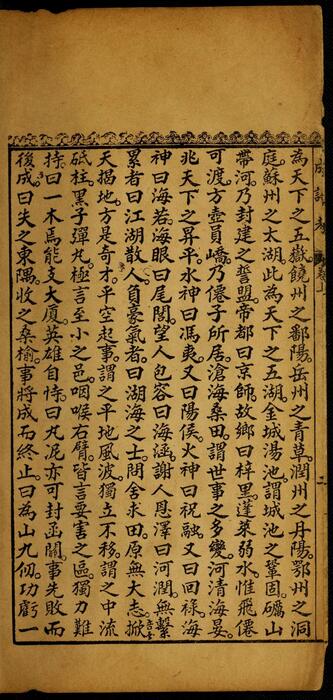 為天下之五嶽饒州之鄱陽岳州之青草潤州之丹陽鄂州之洞
庭蘇州之太湖此為天下之五湖金城湯池謂城池之鞏固礪山
帶河乃封建之誓盟帝都曰京師故鄉曰梓里蓬萊弱水惟飛僊
可渡方壺員嶠乃僊子所居滄海桑田謂世事之多變河清海晏
兆天下之昇平水神曰馮夷又曰陽侯火神曰祝融又曰回祿海
神曰海若海眼曰尾閭望人包容曰海涵謝人恩澤曰河潤無繫
累者曰江湖散人負豪氣者曰湖海之士問舍求田原無大志掀
天揭地方是奇才平空起事謂之平地風波獨立不移謂之中流
砥柱黑子彈丸極言至小之邑咽喉右臂皆言要害之區獨力難
持曰一木焉能支大厦英雄自恃曰丸泥亦可封函關事先敗而
後成曰失之東隅收之桑榆事將成而終止曰為山九仞功虧一